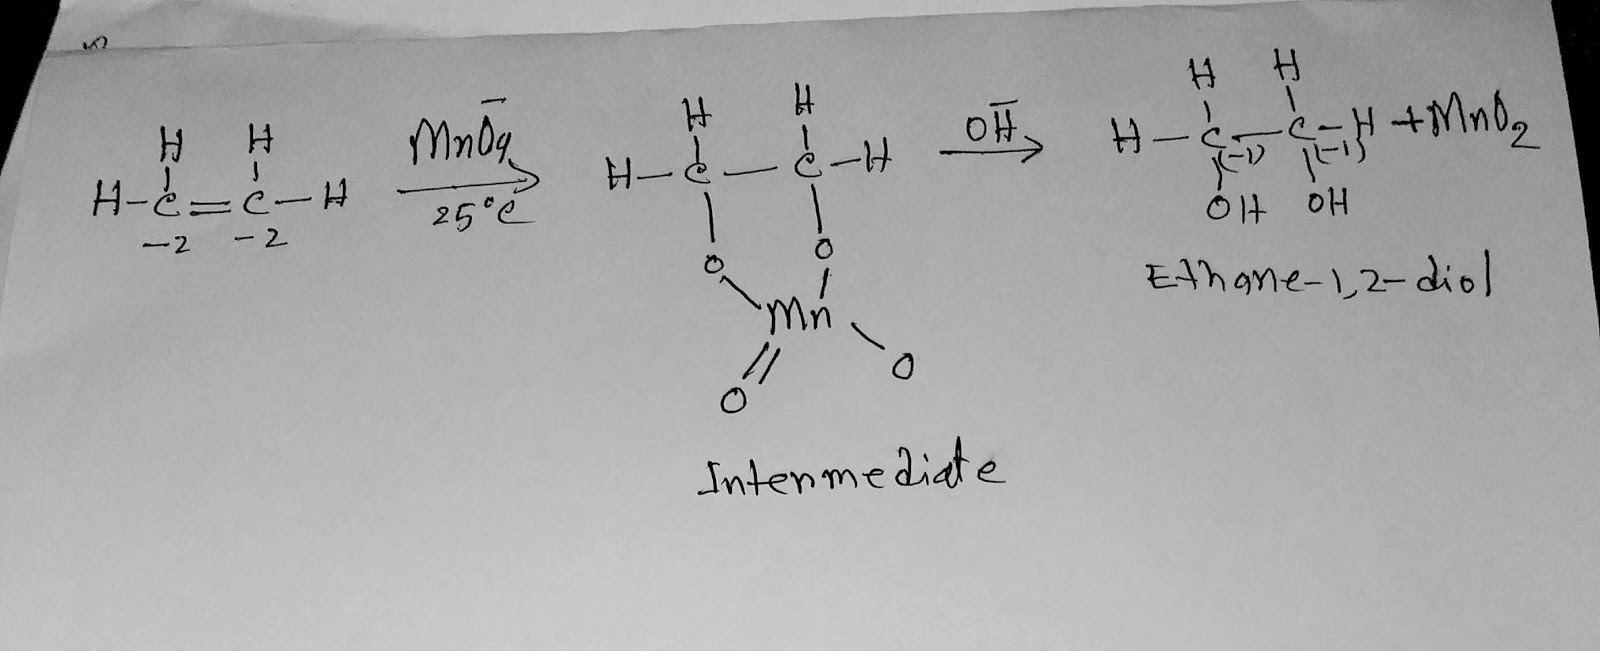 H H H H
H-C=C-H MnO4⁻ H-C-C-H OH⁻ H-C-C-H + MnO2
-2 -2 25°C (-1) (-1)
O O OH OH
Mn Ethane-1,2-diol
O O
Intermediate